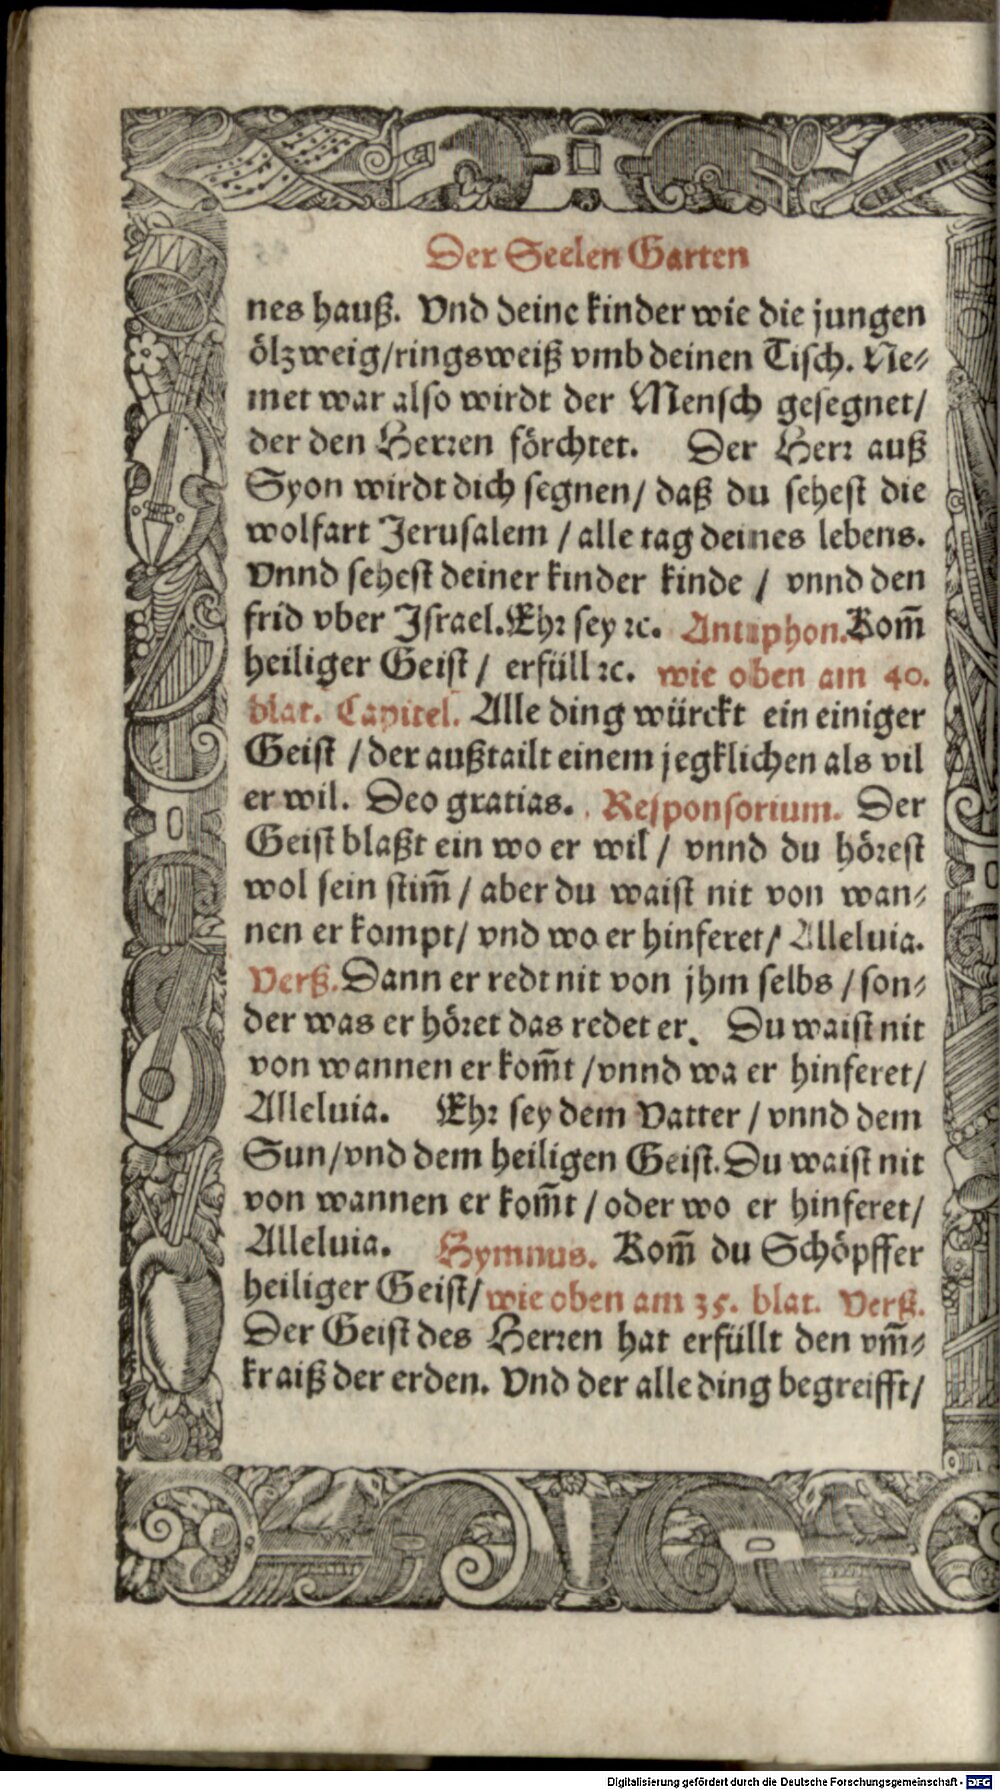 Der Seelen Garten
nes hauß. Vnd deine kinder wie die jungen
ölzweig/ringsweiß vmb deinen Tisch. Ne⸗
met war also wirdt der Mensch gesegnet/
der den Herren förchtet. Der Herr auß
Syon wirdt dich segnen/ daß du sehest die
wolfart Jerusalem / alle tag deines lebens.
Vnnd sehest deiner kinder kinde / vnnd den
frid vber Israel. Ehr sey ꝛc. Antiphon. Kom̃
heiliger Geist/ erfüll ꝛc. wie oben am 40.
blat. Capitel. Alle ding würckt ein einiger
Geist / der außtailt einem jegklichen als vil
er wil. Deo gratias. Responsorium. Der
Geist blaßt ein wo er wil/ vnnd du hörest
wol sein stim̃ / aber du waist nit von wan⸗
nen er kompt/ vnd wo er hinferet/ Alleluia.
Verß. Dann er redt nit von jhm selbs / son⸗
der was er höret das redet er. Du waist nit
von wannen er kom̃t /vnnd wa er hinferet/
Alleluia. Ehr sey dem Vatter / vnnd dem
Sun/vnd dem heiligen Geist. Du waist nit
von wannen er kom̃t / oder wo er hinferet/
Alleluia. Hymnus. Kom̃ du Schöpffer
heiliger Geist/ wie oben am 35. blat. Verß.
Der Geist des Herren hat erfüllt den vm̃⸗
kraiß der erden. Vnd der alle ding begreifft/
Digitalisierung gefördert durch die Deutsche Forschungsgemeinschaft - DFG